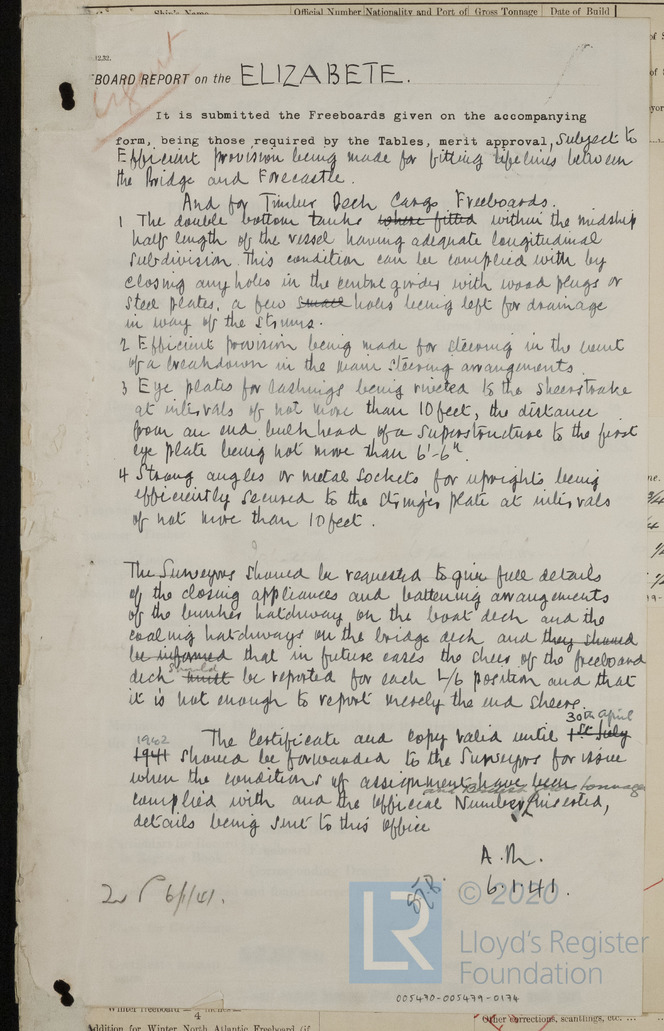 Ship's Name Official Number Nationality and Port of Gross Tonnage Date of Build
12.32.
Urgent
BOARD REPORT on the ELIZABETE.
It is submitted the Freeboards given on the accompanying
form, being those required by the Tables, merit approval, subject to
Efficient provision being made for fitting lifelines between
the Bridge and Forecastle.
And for Timber Deck Cargo Freeboards.
1 The double bottom tanks where fitted within the midship
half length of the vessel having adequate longitudinal
subdivision. This condition can be complied with by
closing any holes in the centre girder with wood plugs or
steel plates, a few small holes being left for drainage
in way of the strums.
2 Efficient provision being made for steering in the event
of a breakdown in the main steering arrangements
3 Eye plates for lashings being riveted to the sheerstrake
at intervals of not more than 10 feet, the distance
from an end bulkhead of a superstructure to the first
eye plate being not more than 6'-6".
4 Strong angles or metal sockets for uprights being
efficiently secured to the stringer plate at intervals
of not more than 10 feet.
The Surveyors should be requested to give full details
of the closing appliances and battening arrangements
of the bunker hatchway on the boat deck and the
coaling hatchways on the bridge deck and they should
be informed that in future cases the sheer of the freeboard
should
deck must be reported for each L/6 position and that
it is not enough to report merely the end sheers.
30th April
1942 The Certificate and copy valid until 1st July
1941 should be forwarded to the Surveyors for issue
when the conditions of assignment have been
tonnage
complied with and the Official Number inserted,
details being sent to this office
A.M.
6.1.41.
6/1/41.
© 2020
LR
Lloyd's Register
Foundation
005470-005479-0174
Winter Freeboard
4
Addition for Winter North Atlantic Freeboard (if
Other corrections, scantlings, etc.